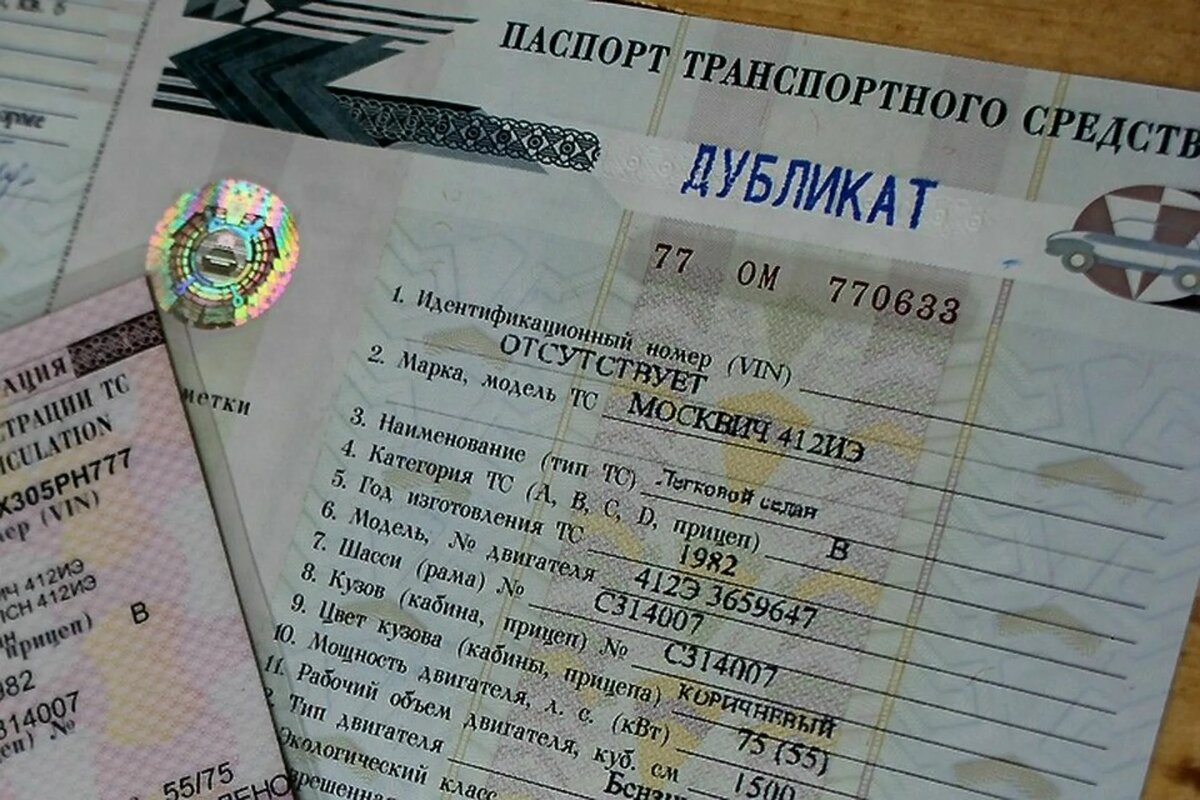 ПАСПОРТ ТРАНСПОРТНОГО СРЕДСТВ
ДУБЛИКАТ
77 ОМ 770633
1. Идентификационный номер (VIN)
ОТСУТСТВУЕТ
2. Марка, модель ТС МОСКВИЧ 412ИЭ
3. Наименование (тип ТС) Легковой седан
4. Категория ТС (A, B, C, D, прицеп) B
5. Год изготовления ТС 1982
6. Модель, № двигателя 412Э 3659647
7. Шасси (рама) № С314007
8. Кузов (кабина, прицеп) № С314007
9. Цвет кузова (кабины, прицепа) КОРИЧНЕВЫЙ
10. Мощность двигателя, л. с. (кВт) 75 (55)
11. Рабочий объем двигателя, куб. см 1500
Тип двигателя Бензи
Экологический класс
метки
АЦИЯ
СТРАЦИИ ТС
ICULATION
Х305РН777
мер (VIN)
ИЧ 412ИЭ
ICH 412ИЭ
прицеп) B
982
314007
цеп) №
55/75